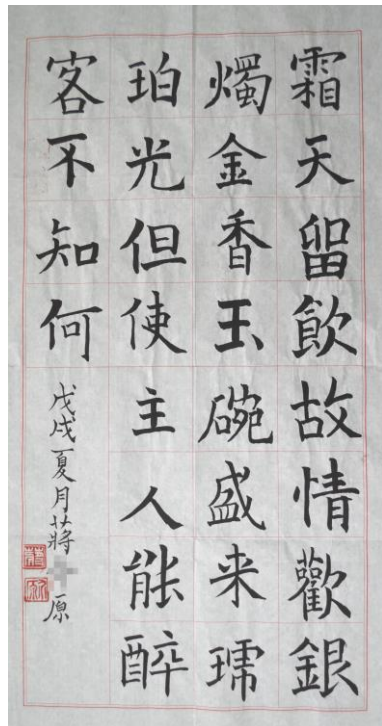 霜天留飲故情歡銀
燭金香玉碗盛来琥
珀光但使主人能醉
客不知何
戊戌夏月蔣 原